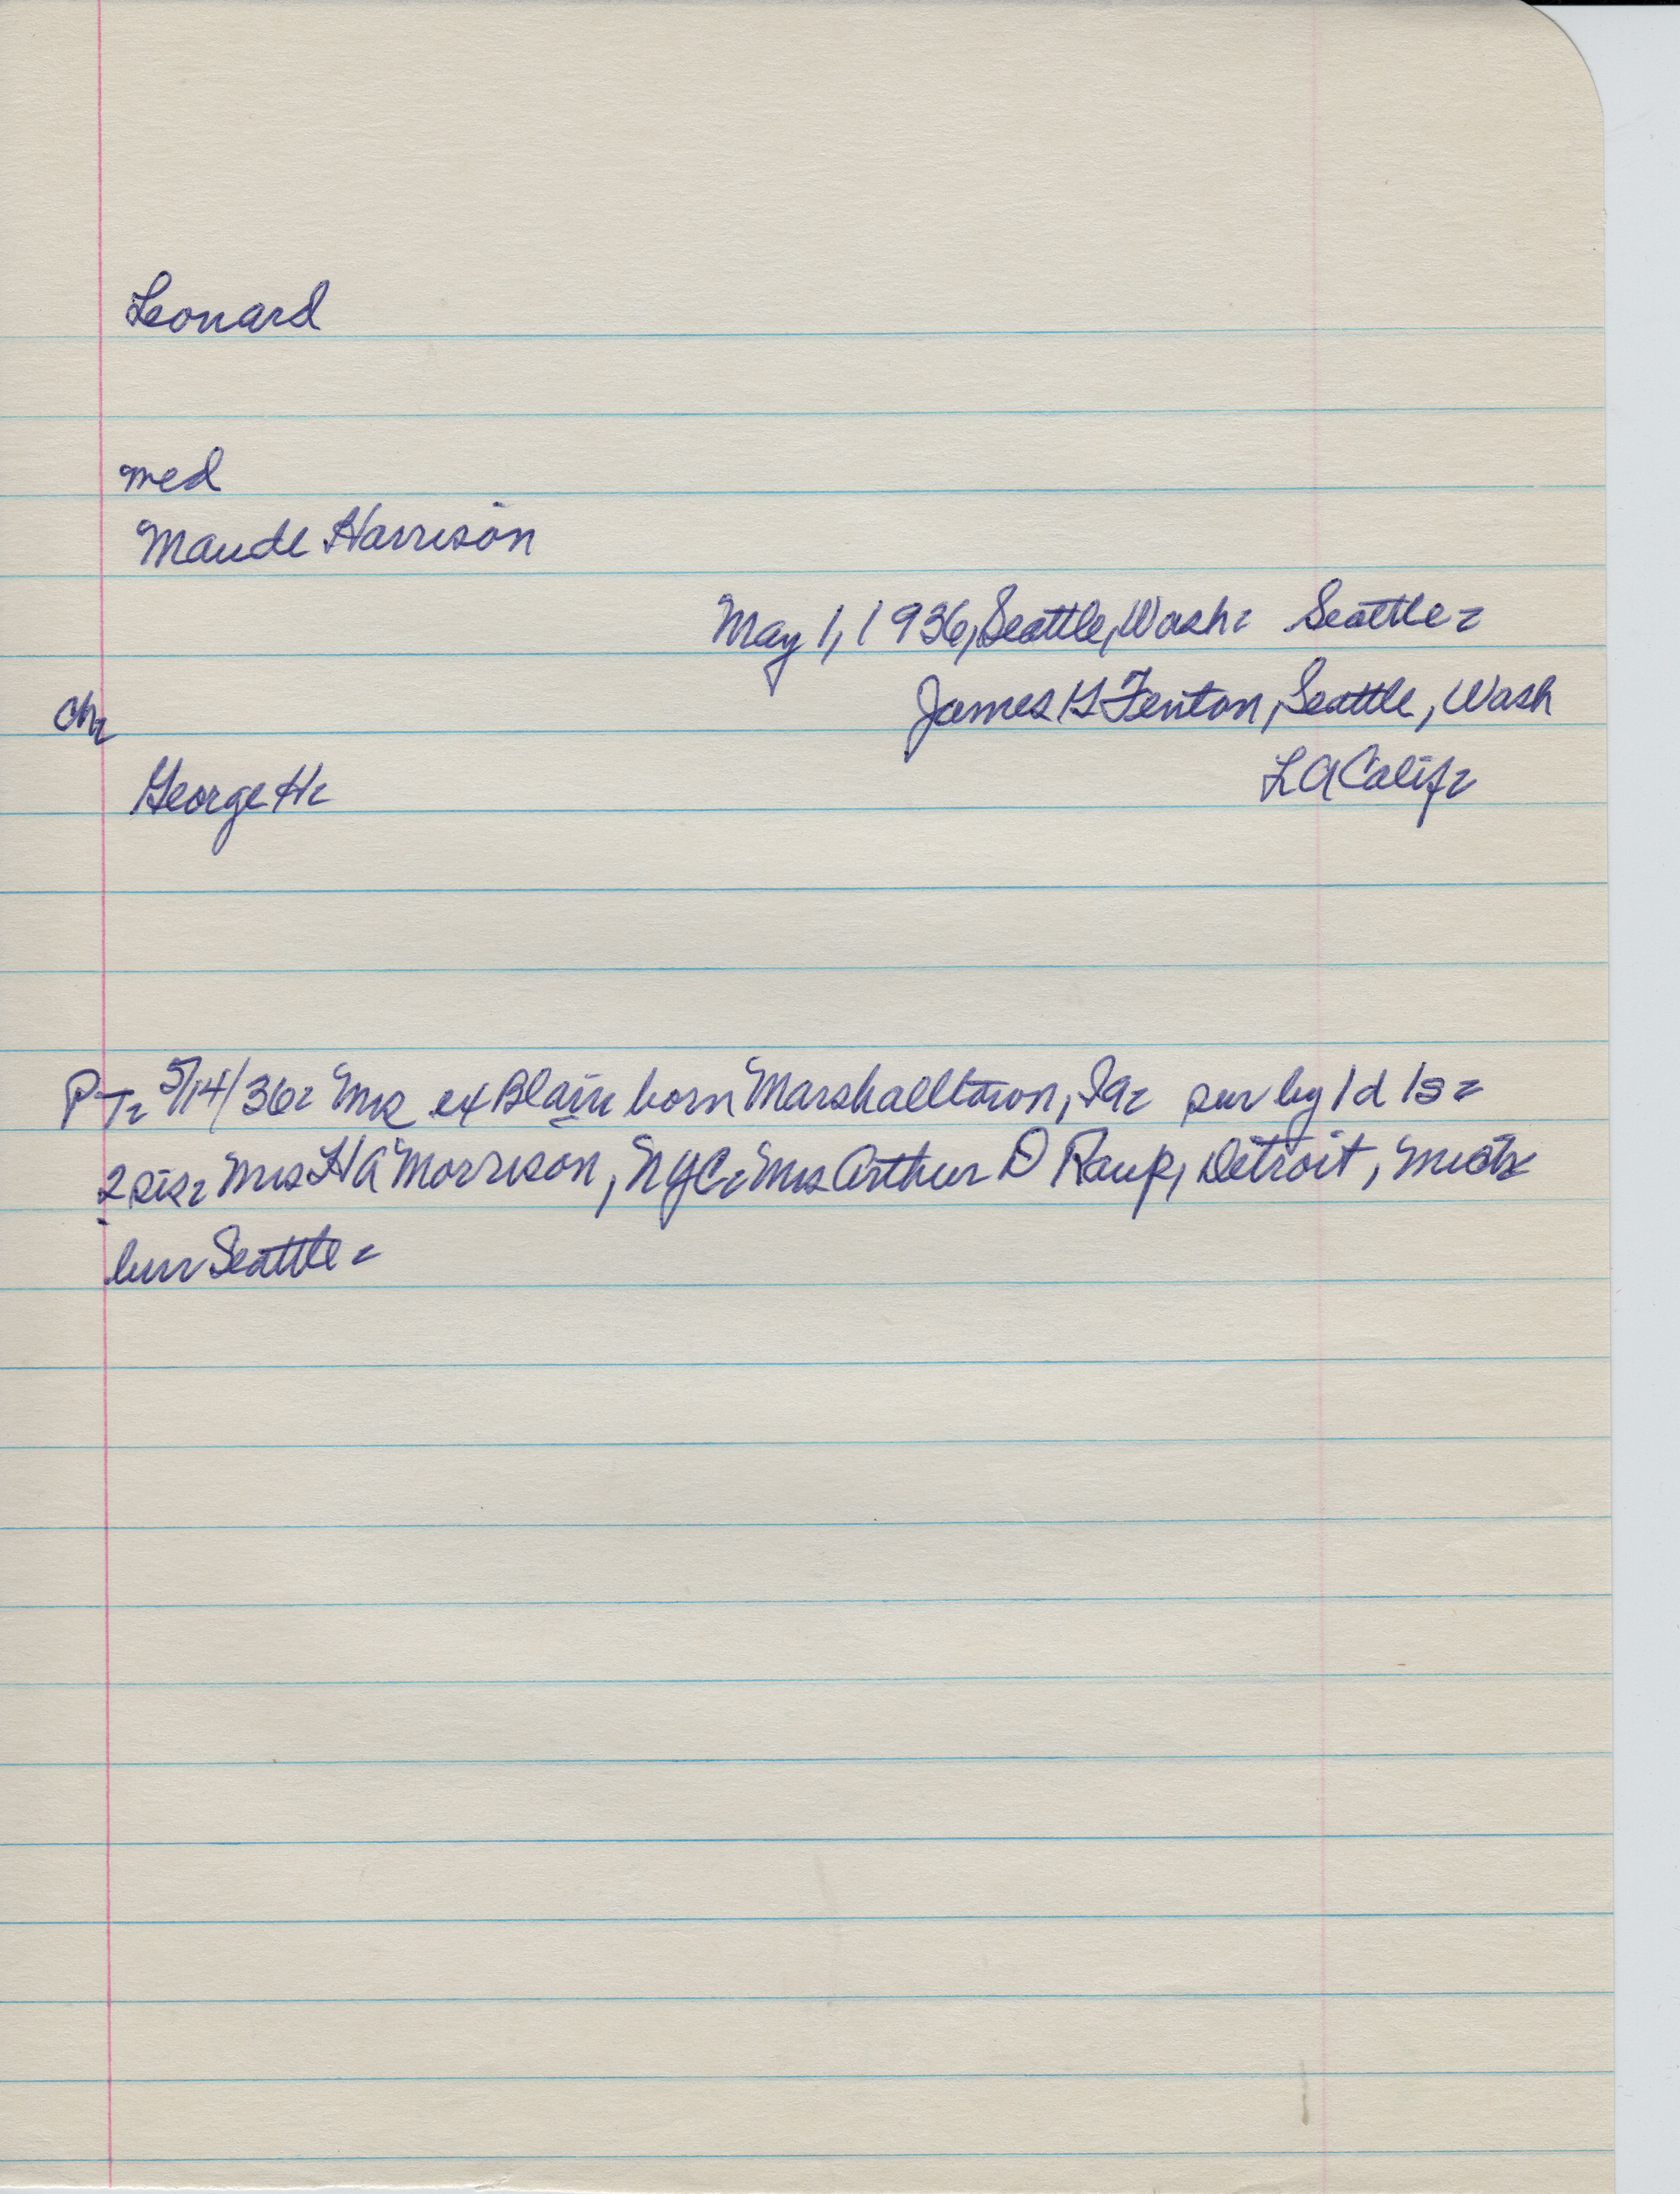 Leonard
med
Maude Harrison
May 1, 1936, Seattle, Wash. Seattle.
James G Fenton, Seattle, Wash
Ch.
L A Calif.
George H.
P T. 5/14/36. Mrs ex Blain born Marshalltown, Ia. sur by 1 d 1s.
2 sis. Mrs H A Morrison, NYC. Mrs Arthur D Raup, Detroit, Mich
bur Seattle.